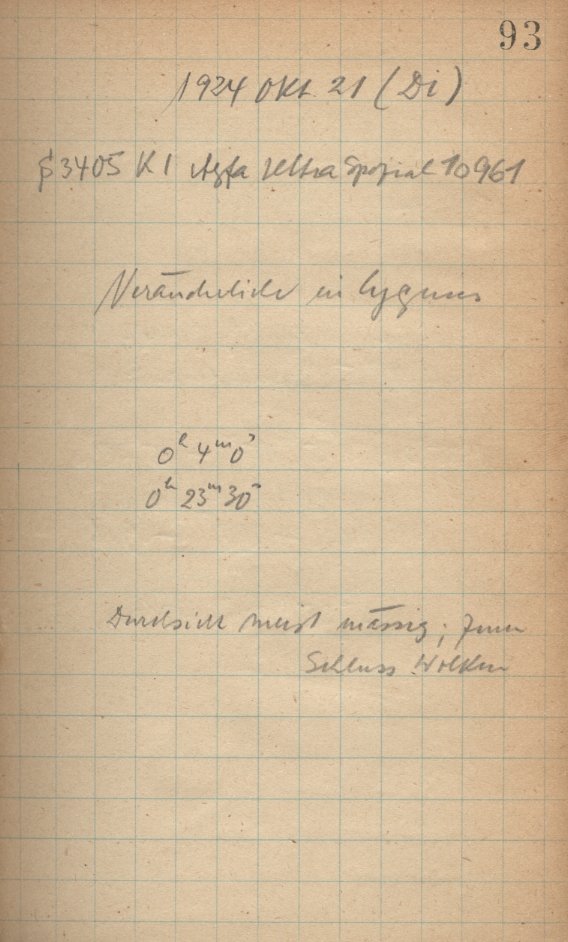 93
1924 Okt. 21 (Di)
§3405 K1 Agfa Ultra Spezial 10961
Veränderliche in Cygnus
0ʰ 4ᵐ 0ˢ
0ʰ 23ᵐ 30ˢ
Durchsicht meist mässig; zum
Schluss Wolken